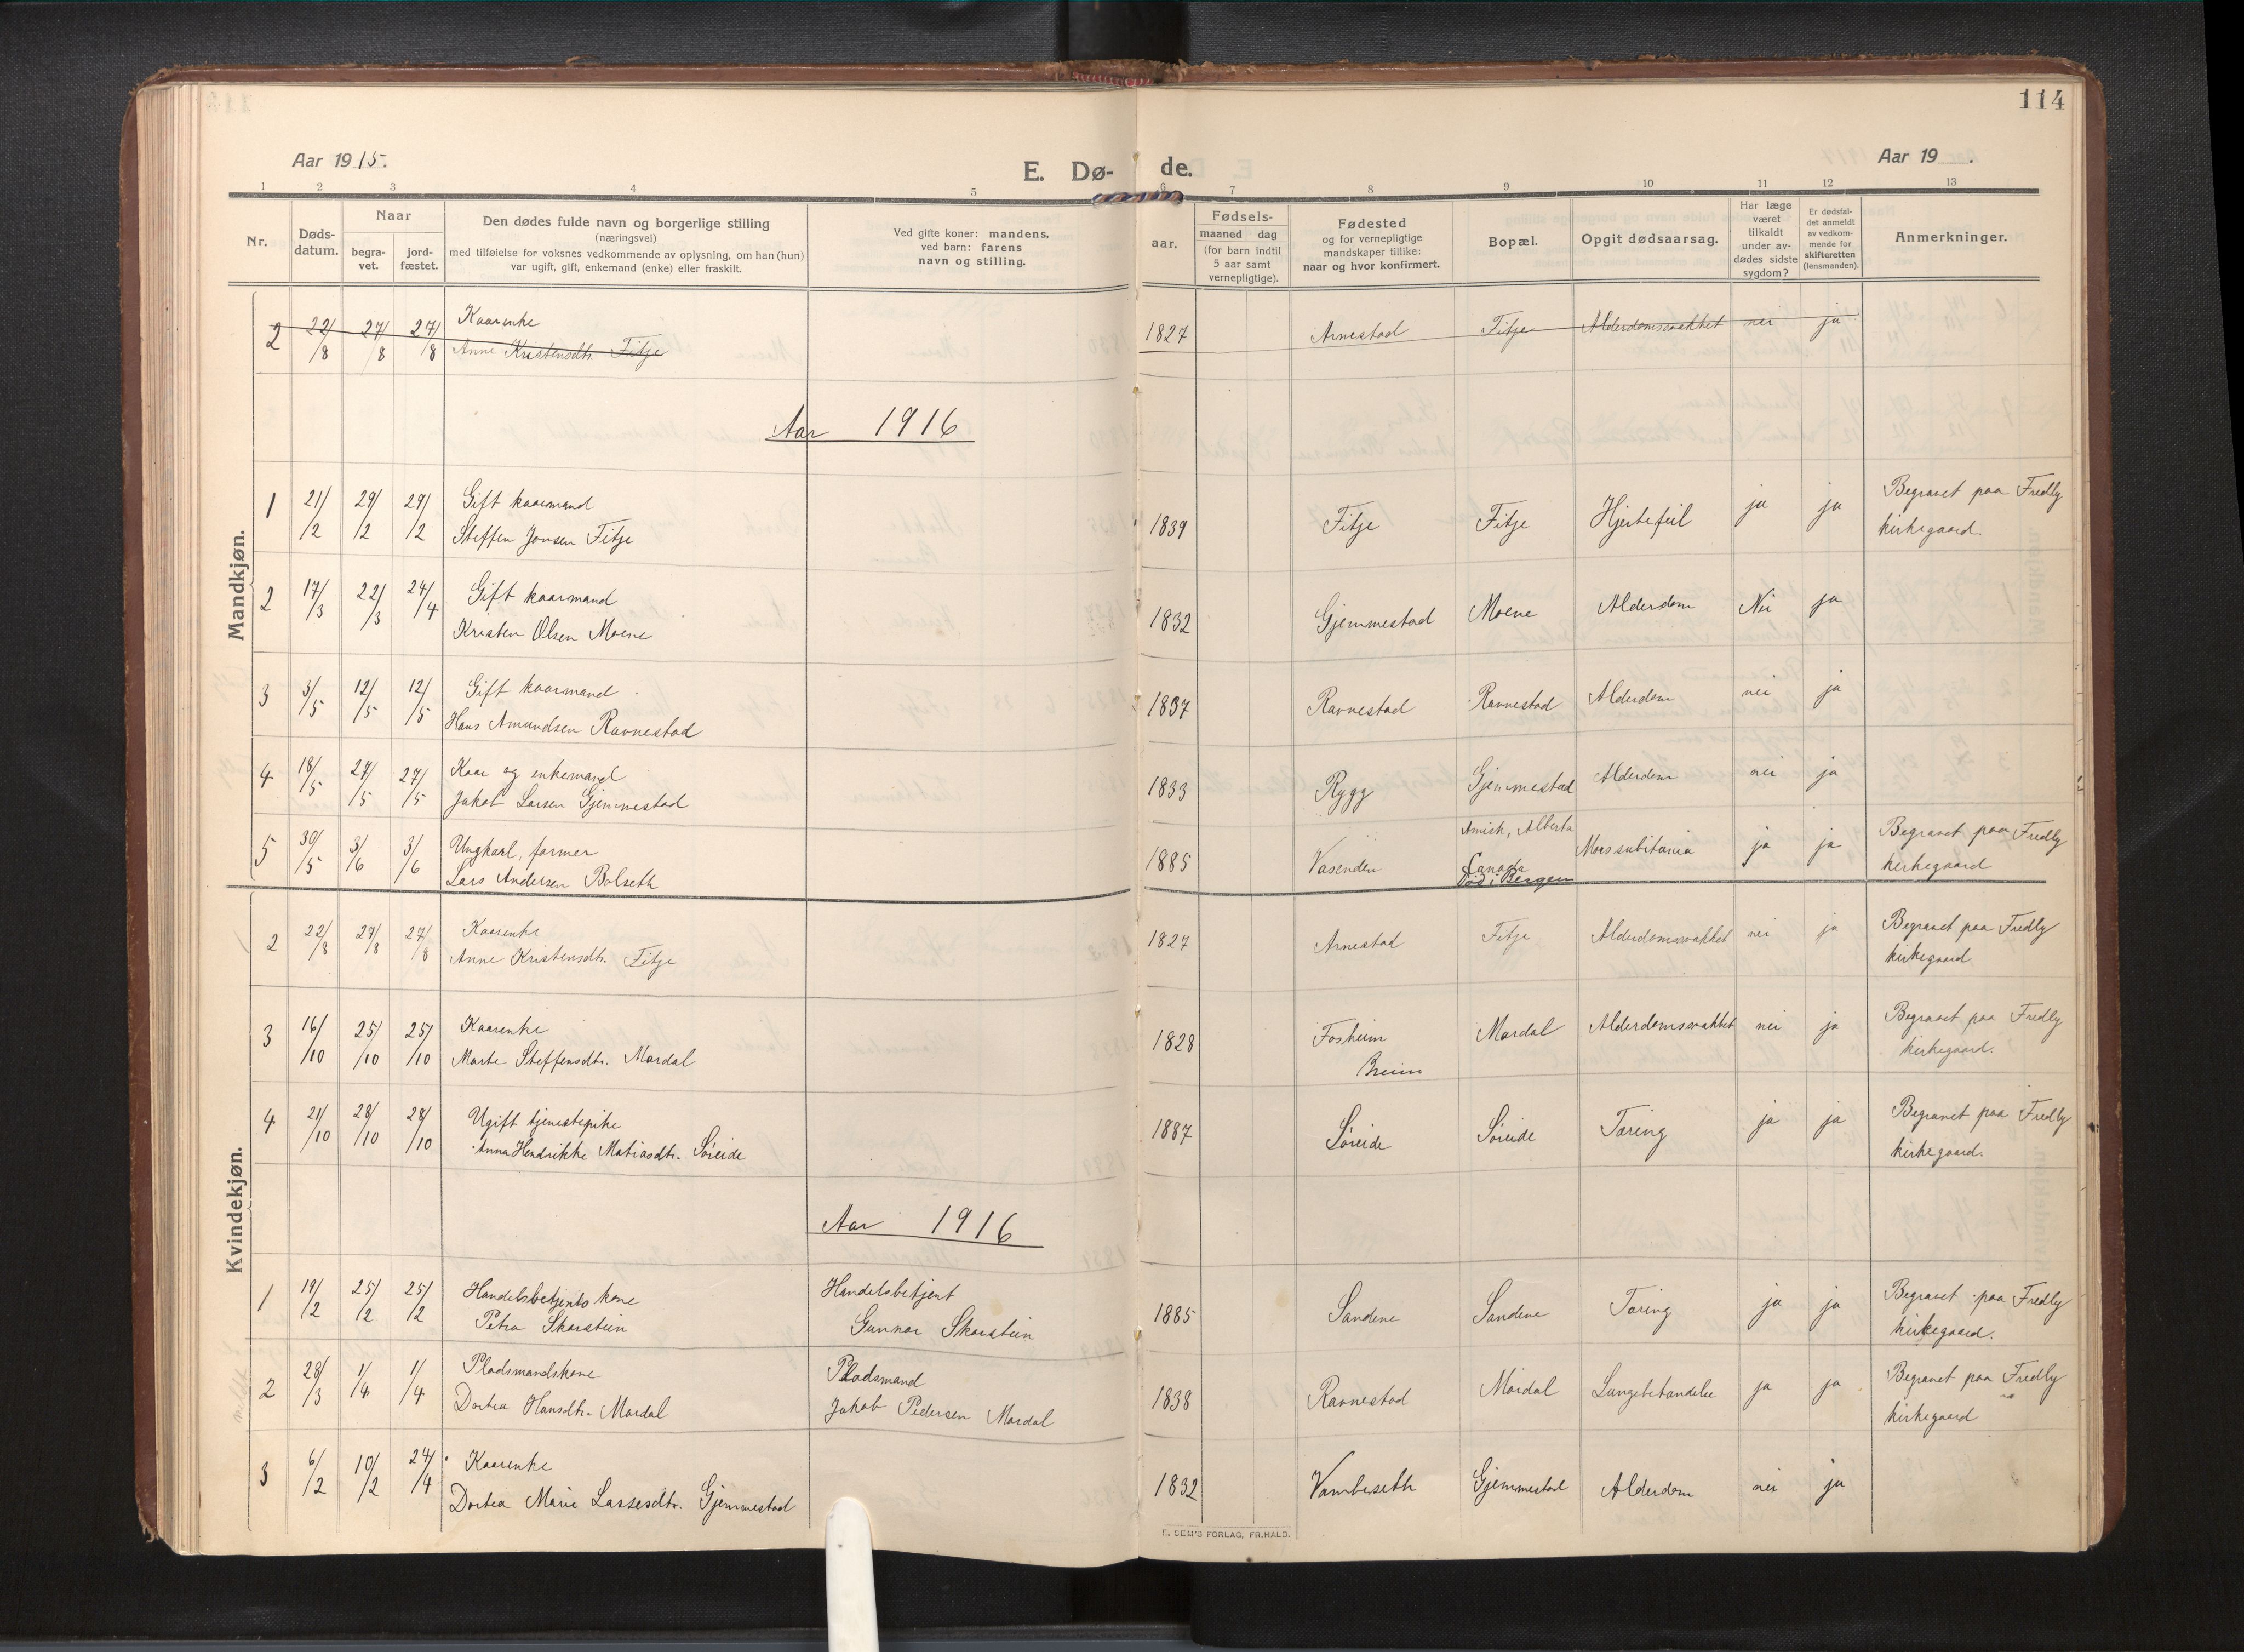 114
Aar 1915.
E. Dø- de.
Aar 19 .
1 2 3 4 5 6 7 8 9 10 11 12 13
Nr.
Døds-
datum.
Naar
begra-
vet.
jord-
fæstet.
Den dødes fulde navn og borgerlige stilling
(næringsvei)
med tilføielse for voksnes vedkommende av oplysning, om han (hun)
var ugift, gift, enkemand (enke) eller fraskilt.
Ved gifte koner: mandens,
ved barn: farens
navn og stilling.
Fødsels-
aar.
maaned dag
(for barn indtil
5 aar samt
vernepligtige).
Fødested
og for vernepligtige
mandskaper tillike:
naar og hvor konfirmert.
Bopæl.
Opgit dødsaarsag.
Har læge
været
tilkaldt
under av-
dødes sidste
sygdom?
Er dødsfal-
det anmeldt
av vedkom-
mende for
skifteretten
(lensmanden).
Anmerkninger.
Mandkjøn.
2 22/8 27/8 27/8 Kaarenke
Anne Kristensdtr. Fitje 1827 Arnestad Fitje Alderdomssvakhet nei ja
Aar 1916
1 21/2 29/2 29/2 Gift kaarmand
Steffen Jonsen Fitje 1839 Fitje Fitje Hjertefeil ja ja Begravet paa Fredly
kirkegaard.
2 17/3 22/3 24/4 Gift kaarmand
Kristen Olsen Moene 1832 Gjemmestad Moene Alderdom Nei ja
3 3/5 12/5 12/5 Gift kaarmand
Hans Amundsen Ravnestad 1837 Ravnestad Ravnestad Alderdom nei ja
4 18/5 27/5 27/5 Kaar og enkemand
Jakob Larsen Gjemmestad 1833 Rygg Gjemmestad Alderdom nei ja
5 30/5 3/6 3/6 Ungkarl, farmer
Lars Andersen Bolseth 1885 Vasenden Amisk, Alberta
Canada
Død i Bergen Mors subitania ja ja Begravet paa Fredly
kirkegaard
Kvindekjøn.
2 22/8 27/8 27/8 Kaarenke
Anne Kristensdtr. Fitje 1827 Arnestad Fitje Alderdomssvakhet nei ja Begravet paa Fredly
kirkegaard
3 16/10 25/10 25/10 Kaarenke
Marte Steffensdtr. Mardal 1828 Fosheim
Breim Mardal Alderdomssvakhet nei ja Begravet paa Fredly
kirkegaard.
4 21/10 28/10 28/10 Ugift tjenestepike
Anna Hendrikke Matiasdtr. Søreide 1887 Søreide Søreide Tæring ja ja Begravet paa Fredly
kirkegaard.
Aar 1916
1 19/2 25/2 25/2 Handelsbetjents kone
Petra Skarstein Handelsbetjent
Gunnar Skarstein 1885 Sandene Sandene Tæring ja ja Begravet paa Fredly
kirkegaard.
2 28/3 1/4 1/4 Pladsmandskone
Dortea Hansdtr. Mardal Pladsmand
Jakob Pedersen Mardal 1838 Ravnestad Mardal Lungebetændelse ja ja Begravet paa Fredly
kirkegaard
3 6/2 10/2 24/4 Kaarenke
Dortea Marie Lassesdtr. Gjemmestad 1832 Vambeseth Gjemmestad Alderdom nei ja
E. SEM'S FORLAG, FR.HALD.